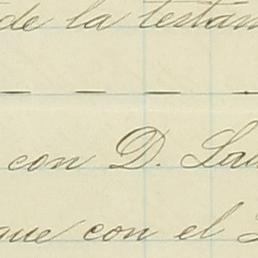 de la testam
con D. Lau
que con el